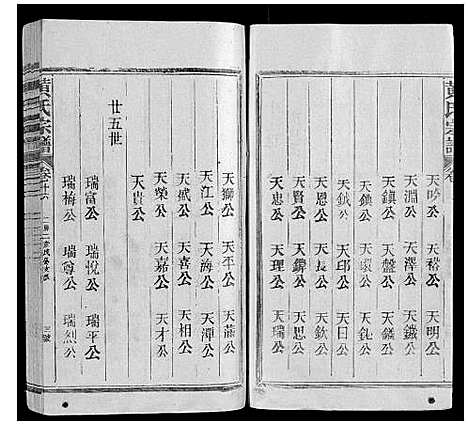 黃氏宗譜
天吟公 天裕公 天明公
天淵公 天鑑公 天鐵公
天鎮公 天盤公 天鑑公
天鎰公 天瑗公 天鈍公
天鉞公 天邱公 天日公
天恩公 天長公 天欽公
天賢公 天錚公 天思公
天忠公 天理公 天瑞公
天獅公 天平公 天龍公
天江公 天海公 天潭公
天威公 天喜公 天相公
天榮公 天嘉公 天才公
天貴公
廿五世
瑞富公 瑞悅公 瑞平公
瑞梅公 瑞尊公 瑞烈公
黃氏宗譜 卷廿六 三號